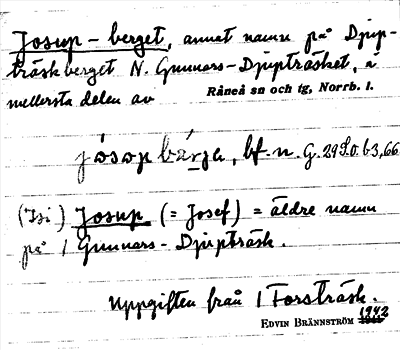 Josup-berget, annat namn på Djup-
träskberget N. Gunnars-Djupträsket, i
mellersta delen av Råneå sn och tg, Norrb. l.
jósop bárja, bf. n. G. 29 S.O. b3,66
( ) Josup (= Josef) = äldre namn
på / Gunnars-Djupträsk.
Uppgiften från / Forsträsk.
1942
EDVIN BRÄNNSTRÖM